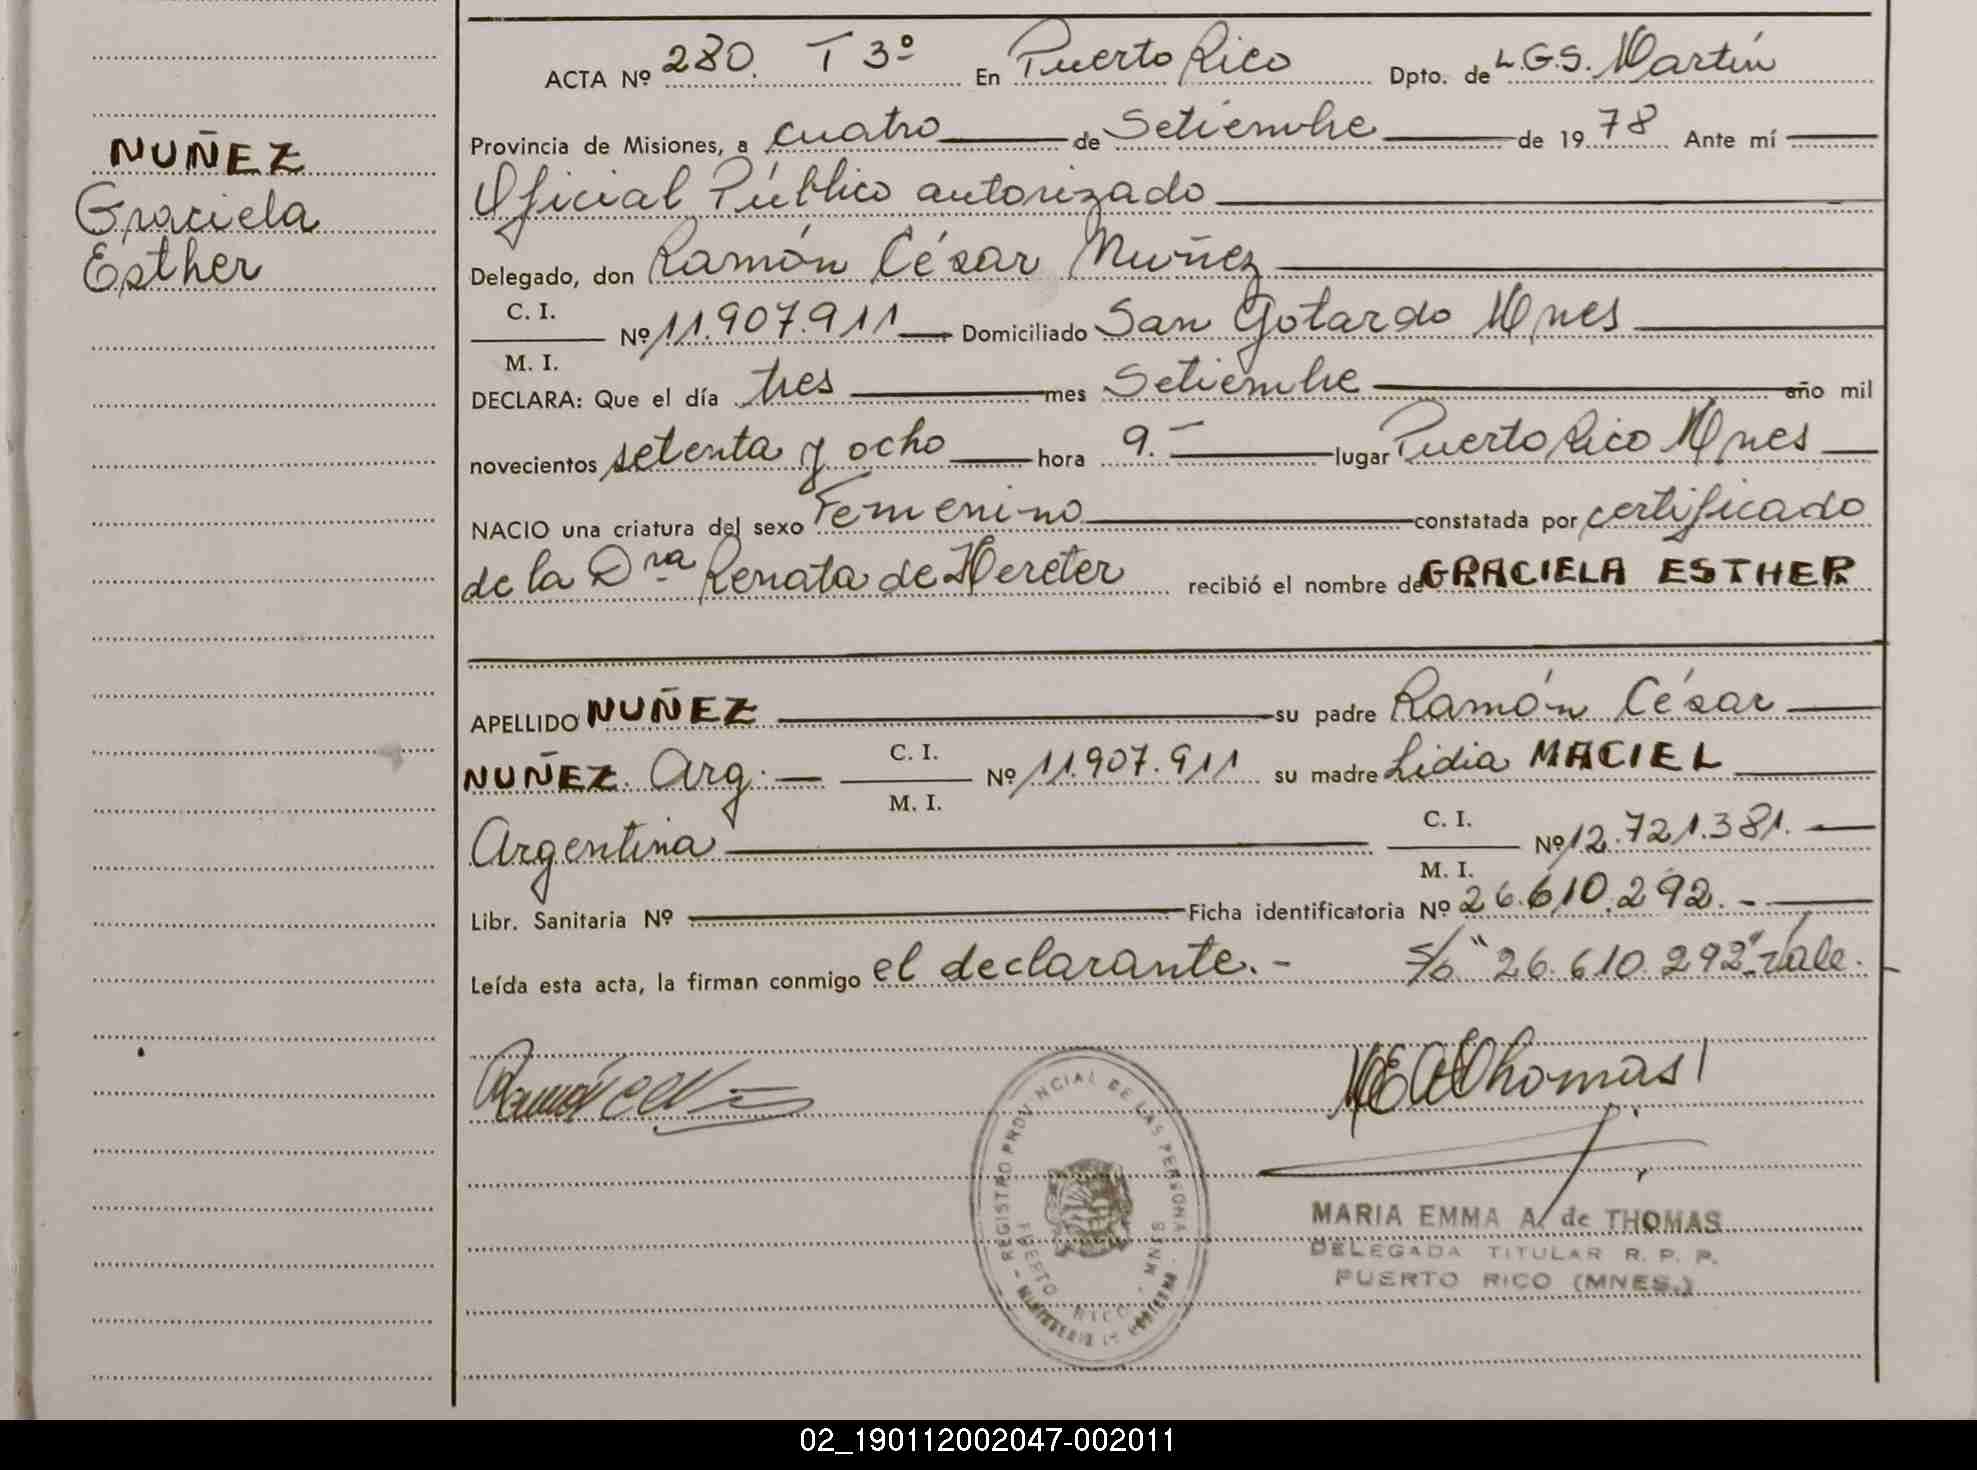 ACTA Nº 280. T 3º En Puerto Rico Dpto. de L.G.S. Martín
Provincia de Misiones, a cuatro de Setiembre de 1978 Ante mí
Oficial Público autorizado
Delegado, don Ramón César Nuñez
C. I.
M. I.
Nº 11.907.911 Domiciliado San Gotardo Mnes
DECLARA: Que el día tres mes Setiembre año mil
novecientos setenta y ocho hora 9.- lugar Puerto Rico Mnes
NACIO una criatura del sexo Femenino constatada por certificado
de la Dra Renata de Hereter recibió el nombre de GRACIELA ESTHER
APELLIDO NUÑEZ su padre Ramón César
NUÑEZ. Arg. C. I. M. I. Nº 11.907.911 su madre Lidia MACIEL
Argentina C. I. M. I. Nº 12.721.381.
Libr. Sanitaria Nº Ficha identificatoria Nº 26.610.292.-
Leída esta acta, la firman conmigo el declarante.- S/b "26.610.292" vale.
NUÑEZ
Graciela
Esther
Ramón C
MEAThomas
REGISTRO PROVINCIAL DE LAS PERSONAS
PUERTO RICO - MNES
MINISTERIO DE GOBIERNO
MARIA EMMA A. de THOMAS
DELEGADA TITULAR R. P. P.
PUERTO RICO (MNES.)
02_190112002047-002011